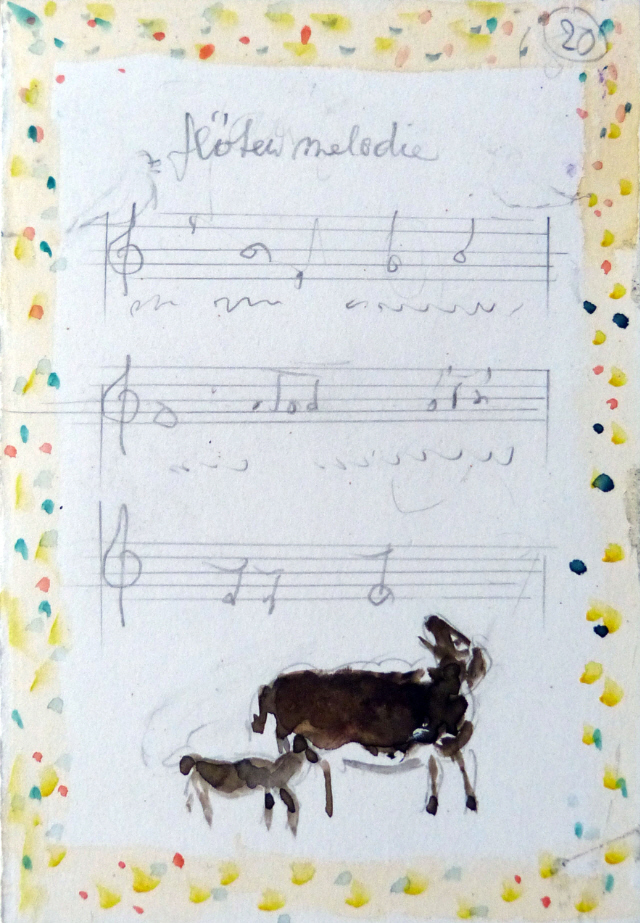 20
flötenmelodie